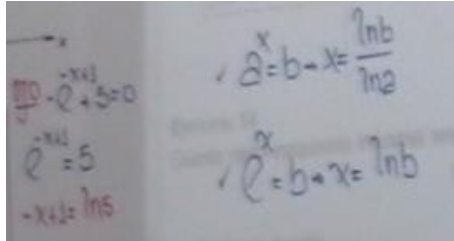 x
-e^{-x+1}+5=0
e^{-x+1}=5
-x+1=ln5
a^x=b→x=lnb/lna
e^x=b→x=lnb